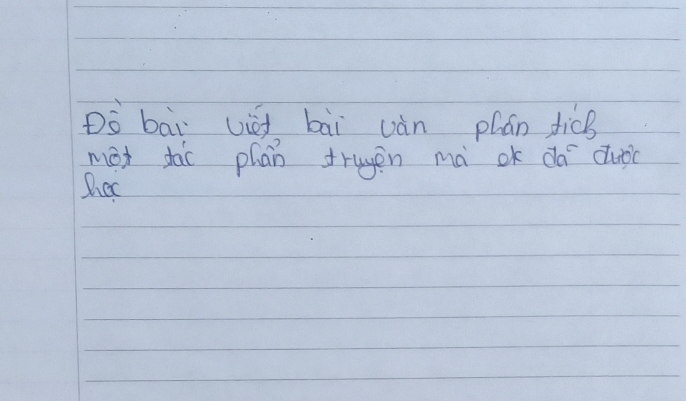 Đề bài viết bài văn phân tích
một tác phẩm truyện mà ek đã được
học